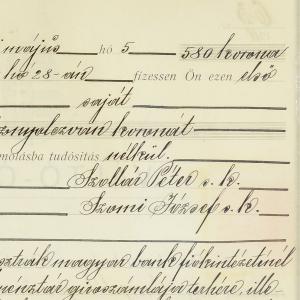 május hó 5 580 korona
hó 28-án fizessen Ön ezen első
saját
nyolczvan koronát
molásba tudósítás nélkül.
Szollár Péter s. k.
Szomi József s. k.
osztrák magyar bank fiókintézeténél
girószámlája terhére, ille-